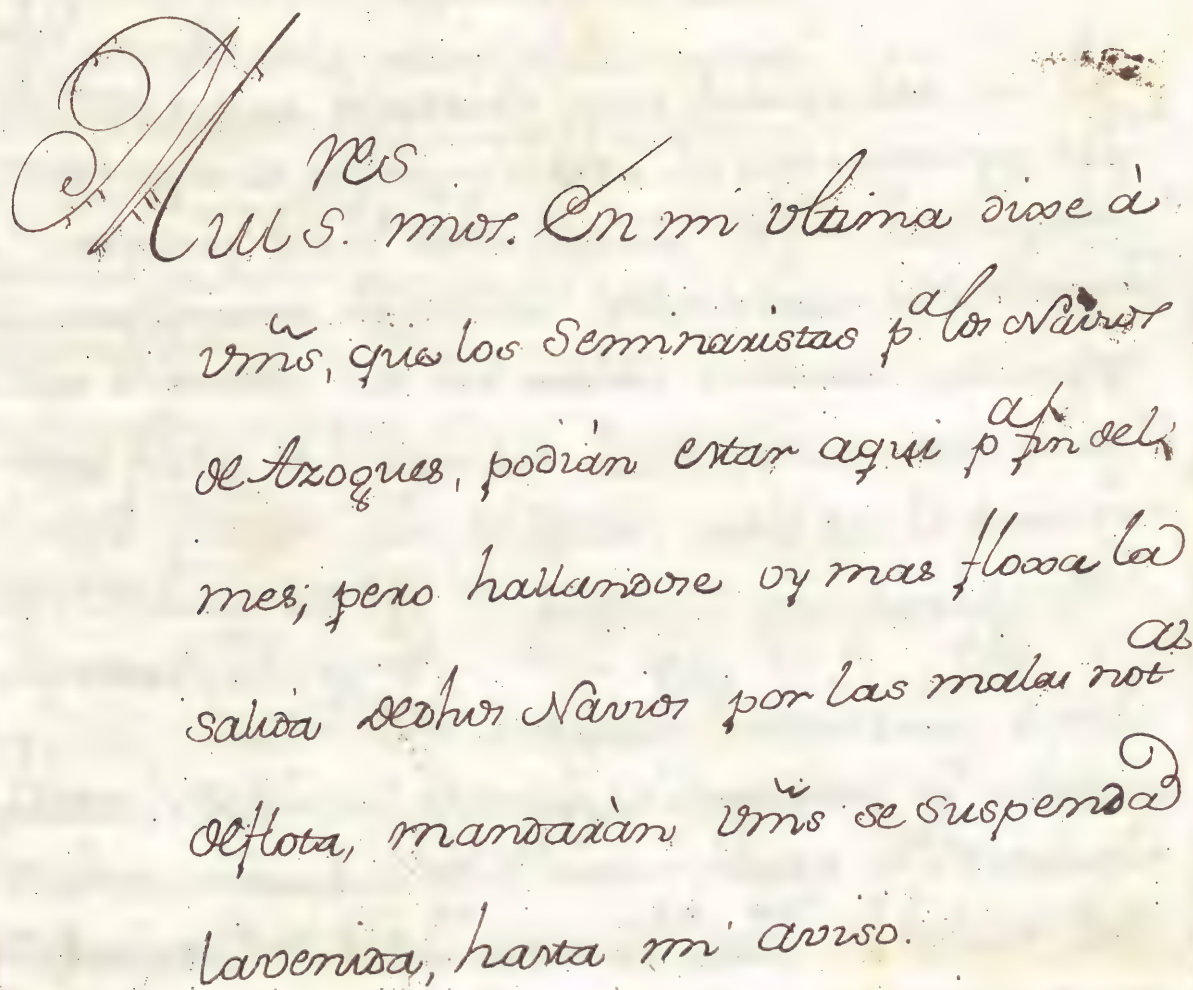 Mui S.res mios. En mi vltima dixe à
vm̃s, que los Seminaristas p.a los Navios
de Azogues, podiàn estar aqui p.a fin del
mes; pero hallandose oy mas floxa la
salida de dhos Navios por las malas not.as
de flota, mandaràn vm̃s se suspenda
la venida, hasta mi aviso.